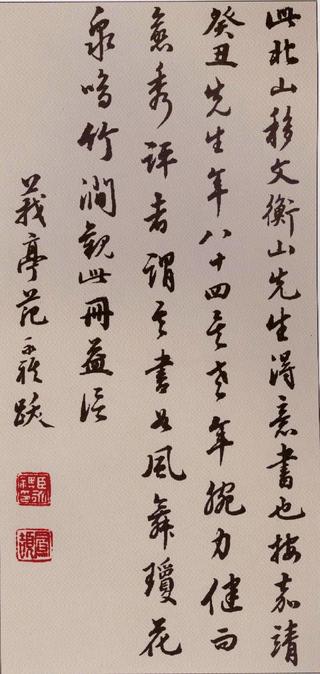 此北山移文衡山先生得意書也按嘉靖
癸丑先生年八十四其老年腕力健而
愈秀評者謂其書如風舞瓊花
泉鳴竹澗觀此冊益信
莪亭范永祺跋